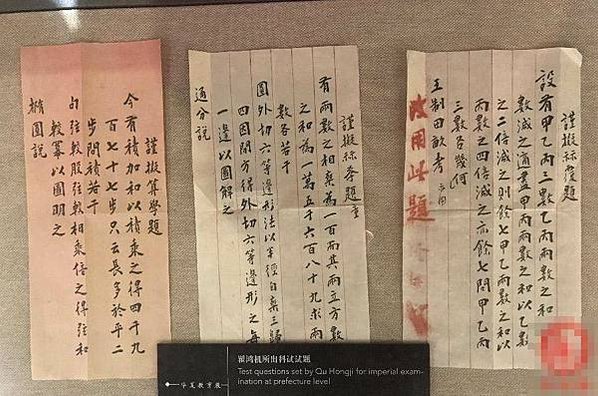 設有甲乙丙三數乙丙兩數之和以
數減之適盡甲丙兩數之和以乙
之二倍減之則餘七甲乙兩數之和以
丙數之四倍減之亦餘七問甲乙丙
三數各幾何
王制田畝考
改用此題
謹擬考題
有兩數之相乘為一百而其兩立方數
之和為一萬五千六百八十九求兩
數各若干
圓外切六等邊形法以半徑自乘三歸
四因開方得外切六等邊形之每
一邊以圖解之
通分說
謹擬算學題
今有積加和以積乘之得四千九
百七十七步只云長多於平二
步問積若干
勾弦較股弦較相乘倍之得弦和
較冪以圖明之
橢圓說
瞿鸿机所出科试试题
Test questions set by Qu Hongji for imperial exam-
ination at prefecture level
华夏教育展